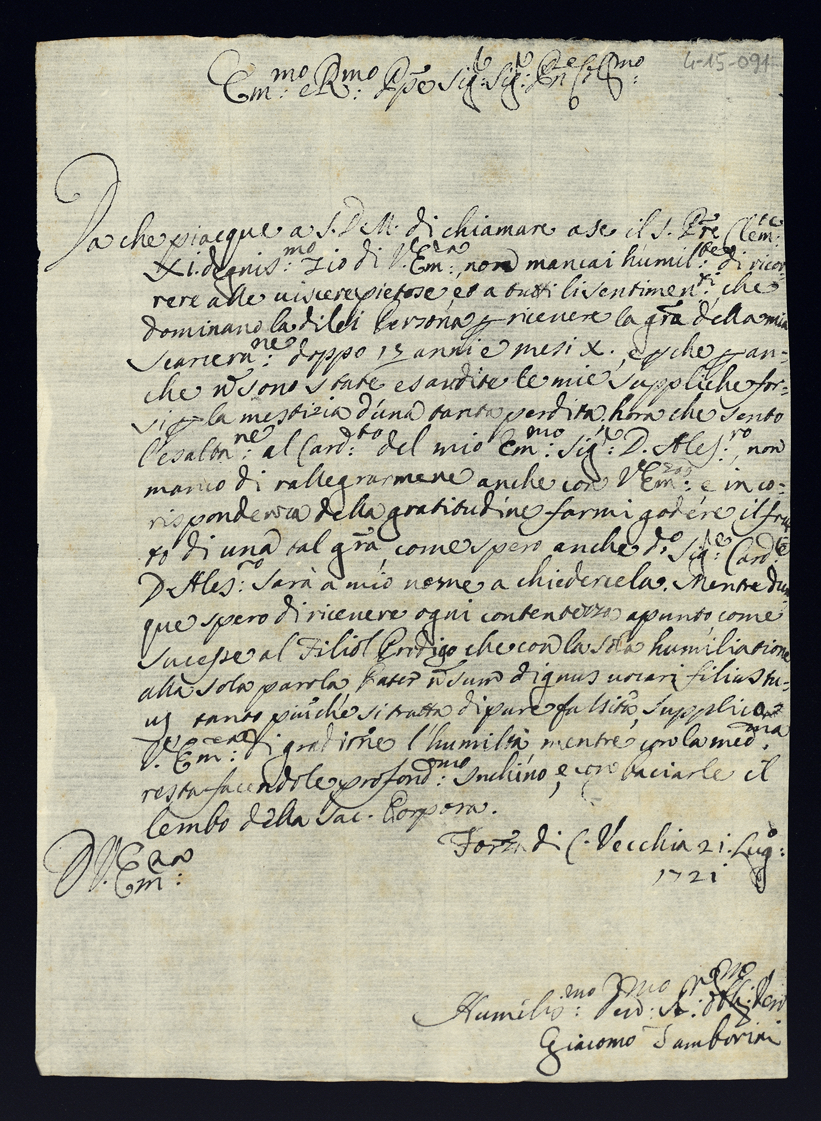 4-15-091
Em:mo e R:mo Ppe Sig:r Sig:r Pne Col:mo
Da che piacque a S. D. M. di chiamare a se il S. Pre Clem:te
XI. degnis:mo Zio di V. Em:za, non mancai humil:te di ricor-
rere alle viscere pietose ed a tutti li sentimenti, che
dominano la di lei Persona p ricevere la gra della mia
Scarcera:ne doppo 13 anni e mesi X., e p che p an-
che nō sono state esaudite le mie suppliche for-
si p la mestizia d'una tanta perdita, hora che sento
l'esalta:ne al Card:to del mio Em:mo Sig:r D. Ales:ro, non
manco di rallegrarmene anche con V. Em:za e in co-
rispondenza della gratitudine farmi godere il frut-
to di una tal gra, come spero anche do Sig:r Card:le
D. Ales:ro sarà a mio nome a chiedercela. Mentre dun-
que spero di ricevere ogni contentezza apunto come
sucesse al Filiol Prodigo che con la sola humiliatione
alla sola parola Pater nō sum dignus vocari filius tu-
us tanto più che si tratta di pure falsità, supplico
V. Em:za di gradirne l'humiltà mentre con la med:ma
resta facendole profond:mo Inchino, e con baciarle il
lembo della Sac. Porpora.
D. V. Em:za
Forza di C. Vecchia 21. Lug:o
1721
Humilis:mo Dev:mo
Giacomo Tamborini